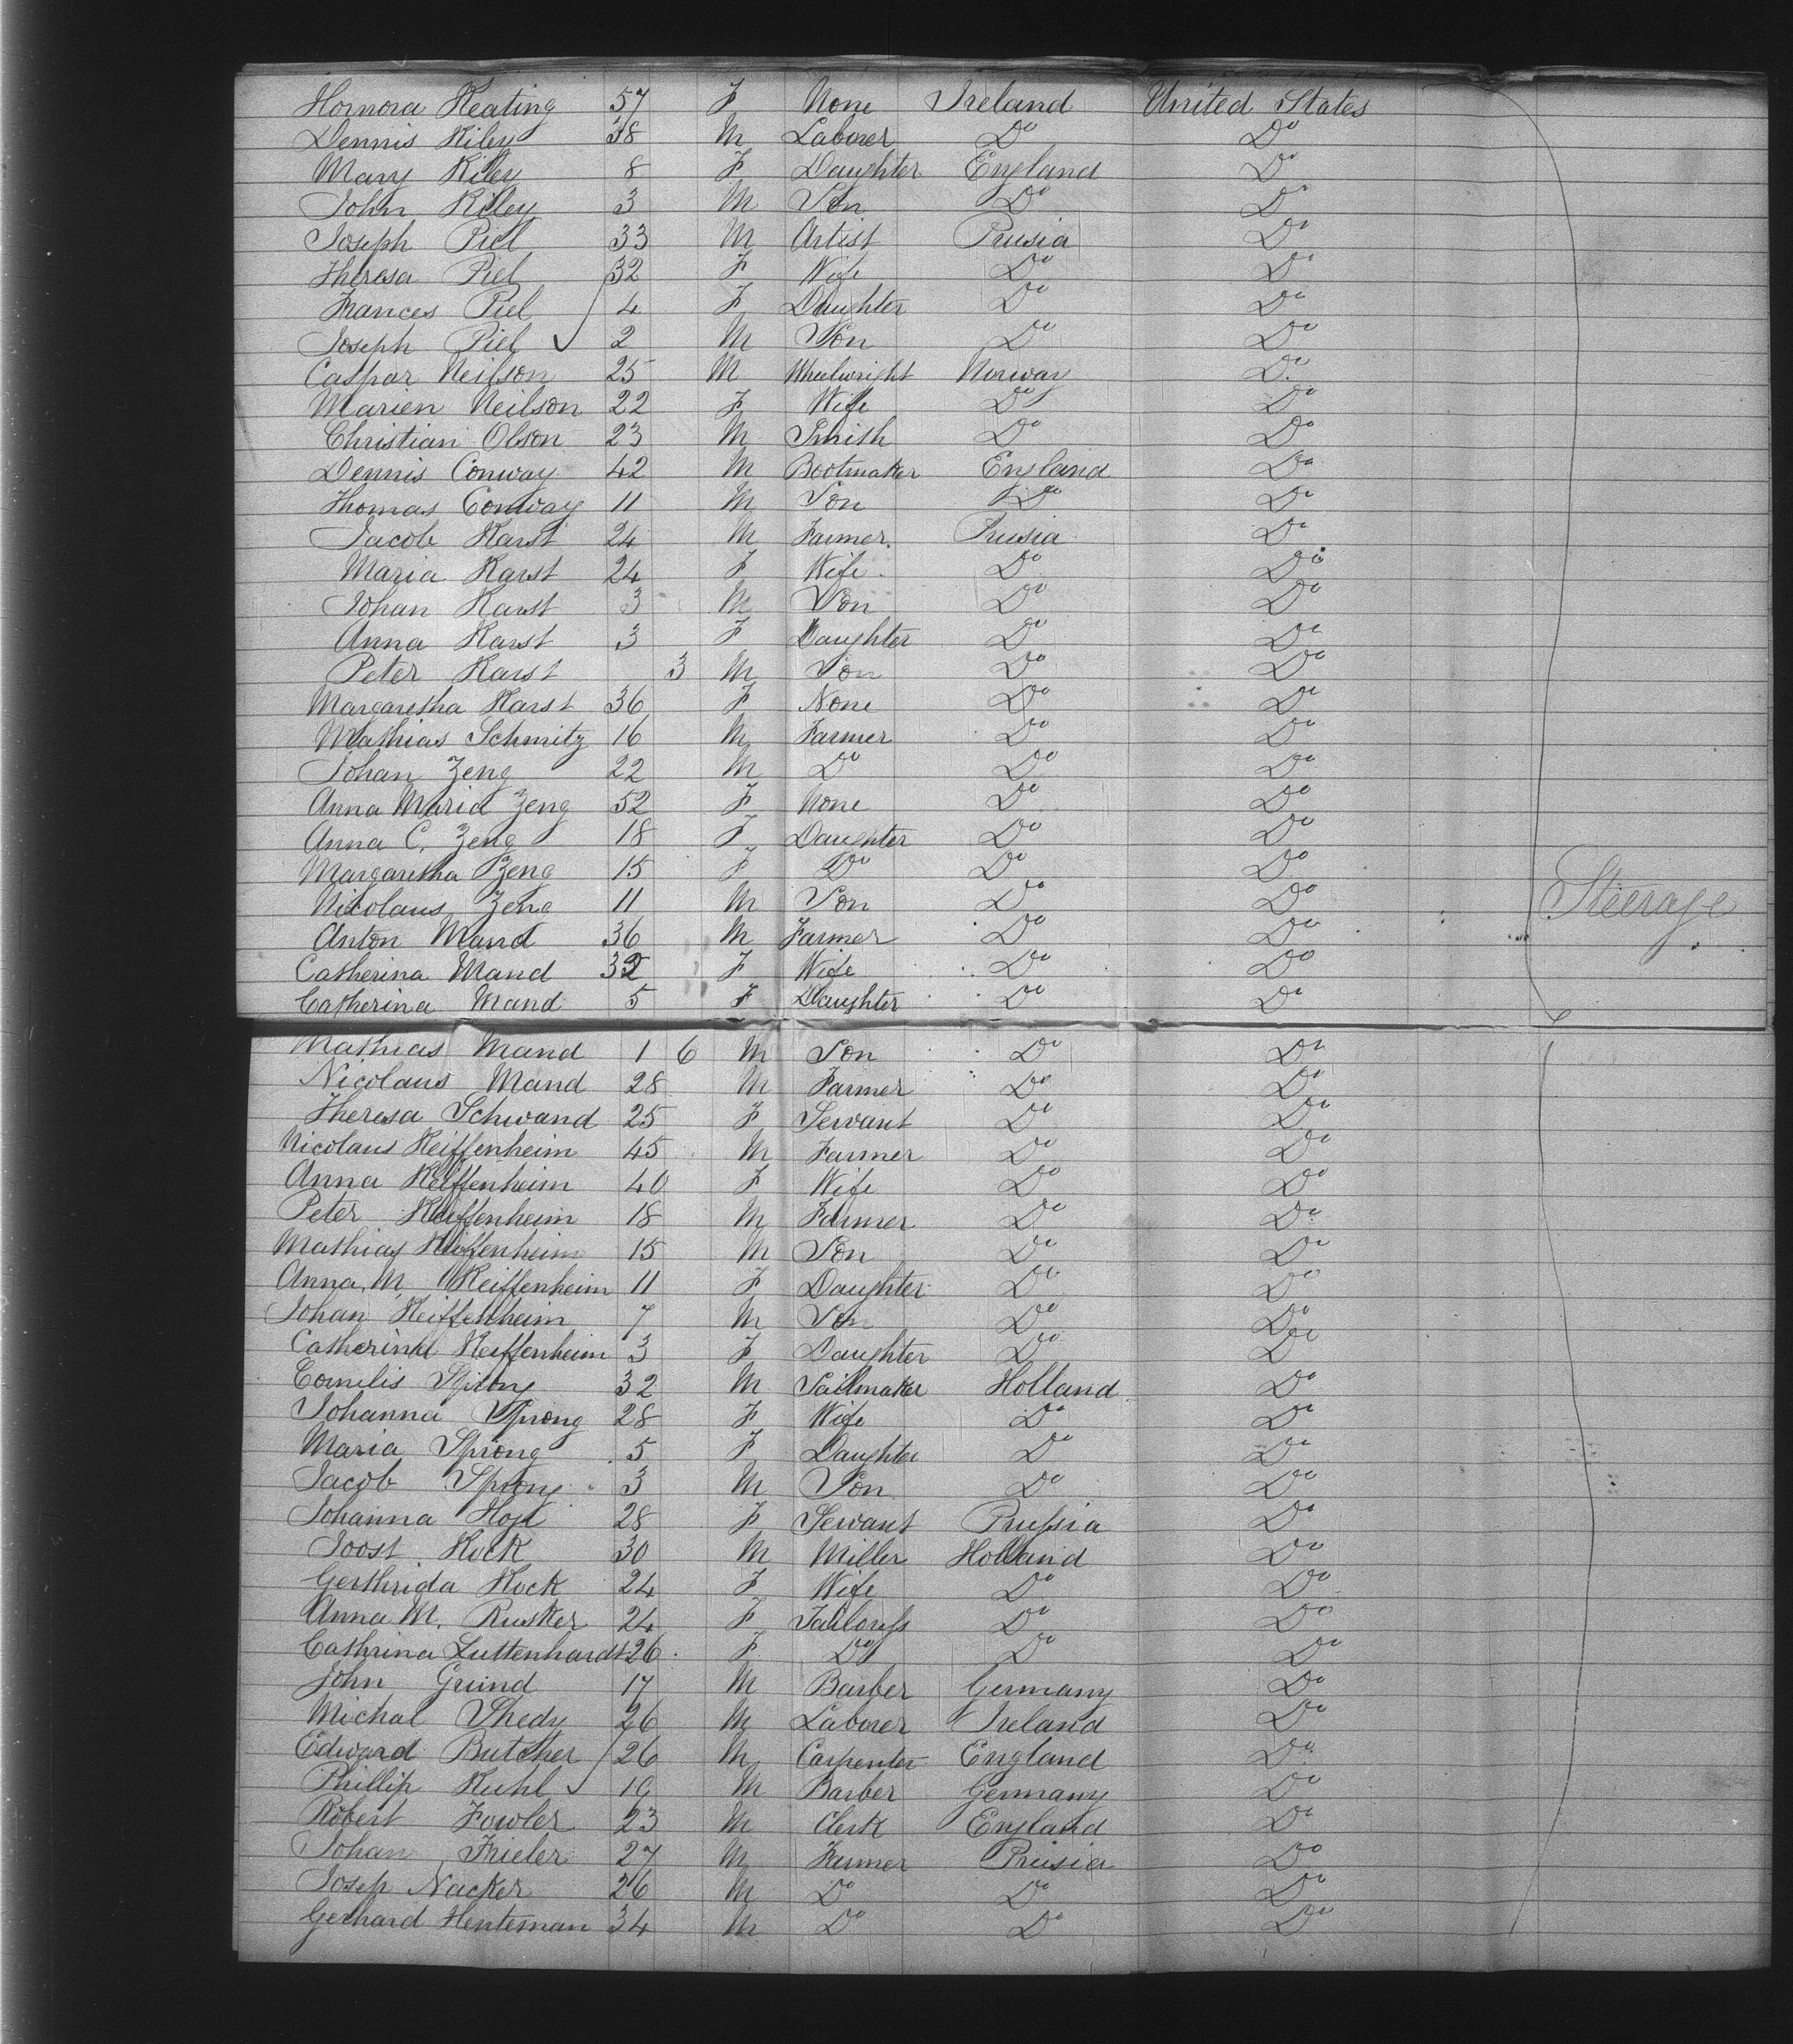 Honora Keating 57 F None Ireland United States
Dennis Riley 38 M Laborer Do Do
Mary Riley 8 F Daughter England Do
John Riley 3 M Son Do Do
Joseph Piel 33 M Artist Prusia Do
Theresa Piel 32 F Wife Do Do
Frances Piel 4 F Daughter Do Do
Joseph Piel 2 M Son Do Do
Caspar Neilson 25 M Wheelwright Norway Do
Marien Neilson 22 F Wife Do Do
Christian Olson 23 M Smith Do Do
Dennis Conway 42 M Bootmaker England Do
Thomas Conway 11 M Son Do Do
Jacob Karst 24 M Farmer Prusia Do
Maria Karst 24 F Wife Do Do
Johan Karst 3 M Son Do Do
Anna Karst 3 F Daughter Do Do
Peter Karst 3 M Son Do Do
Margaretha Karst 36 F None Do Do
Mathias Schmitz 16 M Farmer Do Do
Johan Zeng 22 M Do Do Do
Anna Maria Zeng 52 F None Do Do
Anna C. Zeng 18 F Daughter Do Do
Margaretha Zeng 15 F Do Do Do
Nicolaus Zeng 11 M Son Do Do Steerage
Anton Mand 36 M Farmer Do Do
Catherina Mand F Wife Do Do
Catherina Mand 5 F Daughter Do Do
Mathias Mand 1 6 M Son Do Do
Nicolaus Mand 28 M Farmer Do Do
Theresa Schwand 25 F Servant Do Do
Nicolaus Reiffenheim 45 M Farmer Do Do
Anna Reiffenheim 40 F Wife Do Do
Peter Reiffenheim 18 M Farmer Do Do
Mathias Reiffenheim 15 M Son Do Do
Anna M Reiffenheim 11 F Daughter Do Do
Johan Reiffenheim 7 M Son Do Do
Catherina Reiffenheim 3 F Daughter Do Do
Cornelis Sprong 32 M Sailmaker Holland Do
Johanna Sprong 28 F Wife Do Do
Maria Sprong 5 F Daughter Do Do
Jacob Sprong 3 M Son Do Do
Johanna 28 F Servant Prussia Do
Joost Kock 30 M Miller Holland Do
Gerthrida Kock 24 F Wife Do Do
Anna M. Rusker 24 F Tailoress Do Do
Cathrina Luttenhardt 26 F Do Do Do
John Grind 17 M Barber Germany Do
Michal Shedy 26 M Laborer Ireland Do
Edward Butcher 26 M Carpenter England Do
Phillip Kuhl 19 M Barber Germany Do
Robert Fowler 23 M Clerk England Do
Johan Frieler 27 M Farmer Prusia Do
Joseph Nacker 26 M Do Do Do
Gerhard Henteman 34 M Do Do Do